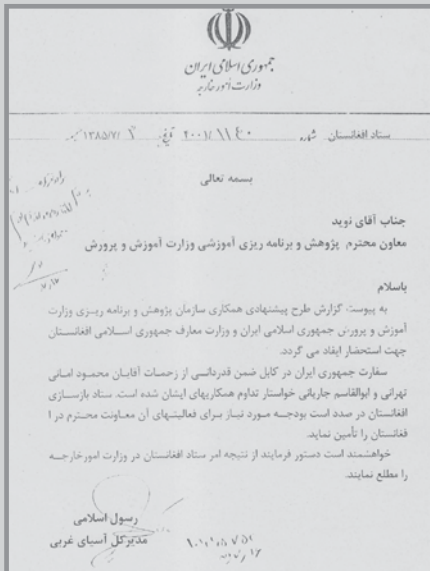 جمهوری اسلامی ایران
وزارت امور خارجه
ستاد افغانستان شماره ۲۰۰۱/۱۱۴۰ تاریخ ۱۳۸۵/۷/۳
بسمه تعالی
جناب آقای نوید
معاون محترم پژوهش و برنامه ریزی آموزشی وزارت آموزش و پرورش
باسلام
به پیوست گزارش طرح پیشنهادی همکاری سازمان پژوهش و برنامه ریزی وزارت
آموزش و پرورش جمهوری اسلامی ایران و وزارت معارف جمهوری اسلامی افغانستان
جهت استحضار ایفاد می گردد.
سفارت جمهوری ایران در کابل ضمن قدردانسی از زحمات آقایان محمود امانی
تهرانی و ابوالقاسم جاریانی خواستار تداوم همکاریهای ایشان شده است. ستاد بازسازی
افغانستان در صدد است بودجه مورد نیاز برای فعالیتهای آن معاونت محترم در ا
فغانستان را تأمین نماید.
خواهشمند است دستور فرمایند از نتیجه امر ستاد افغانستان در وزارت امورخارجه
را مطلع نمایند.
رسول اسلامی
مدیرکل آسیای غربی